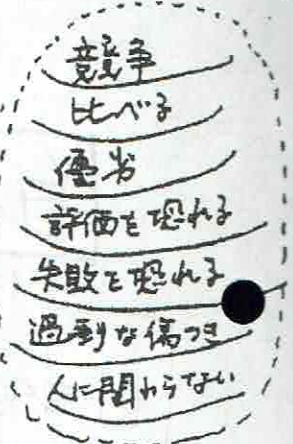 競争
比べる
優劣
評価を恐れる
失敗を恐れる
過剰な傷つき
人に関わらない